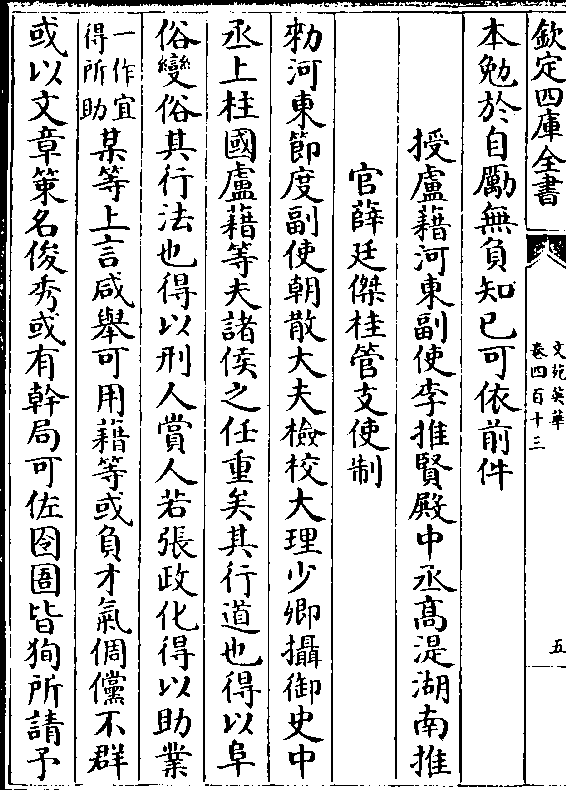 欽定四庫全書
文苑英華
卷四百十三
五
本勉於自勵無負知已可依前件
授盧藉河東副使李推賢殿中丞髙湜湖南推
官薛廷傑桂管支使制
勑河東節度副使朝散大夫檢校大理少卿攝御史中
丞上柱國盧藉等夫諸侯之任重矣其行道也得以阜
俗變俗其行法也得以刑人賞人若張政化得以助業
一作宜
得所助
某等上言咸舉可用藉等或負才氣倜儻不群
或以文章䇿名俊秀或有幹局可佐囹圄皆狥所請予